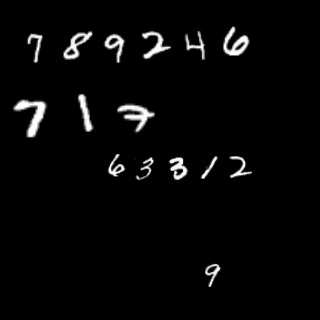 789246
717
63312
9